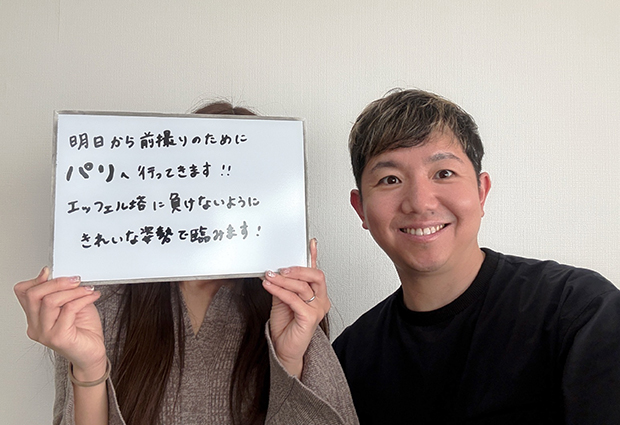 明日から前撮りのために
パリへ行ってきます!!
エッフェル塔に負けないように
きれいな姿勢で臨みます!